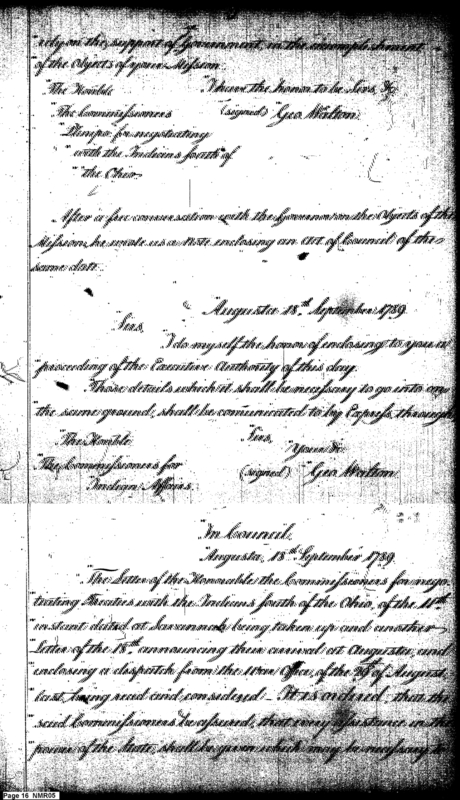 "rely on the support of Government, in the accomplishment
"of the Objects of your Mission.
"The Honble I have the honor to be Sirs, &c
"The Commissioners (signed) Geo. Walton.
"Plenipo. for negotiating
"with the Indians south of
"the Ohio.
After a free conversation with the Governor on the Objects of the
Mission, he wrote us a Note enclosing an Act of Council of the
same date.
"Augusta 18.th September, 1789.
"Sirs,
"I do myself the honor of enclosing to you a
"proceeding of the Executive Authority of this day.
"Those details which it shall be necessary to go into on
"the same ground, shall be communicated to by Express, through,
"The Honble Sirs,
"Your &c.
"The Commissioners for (signed) Geo. Walton
"Indian Affairs.
"In Council,
"Augusta, 18.th September 1789.
"The Letter of the Honourable the Commissioners for nego-
"tiating Treaties with the Indians south of the Ohio, of the 11.th
"instant dated at Savannah being taken up and another
"Letter of the 18.th announcing their arrival at Augusta, and
"inclosing a dispatch from the War Office, of the of August
"last, being read and considered. It is ordered, that the
"said Commissioners be assured, that every assistance in the
"power of the State, shall be given which may be necessary to
Page 16 NMR05